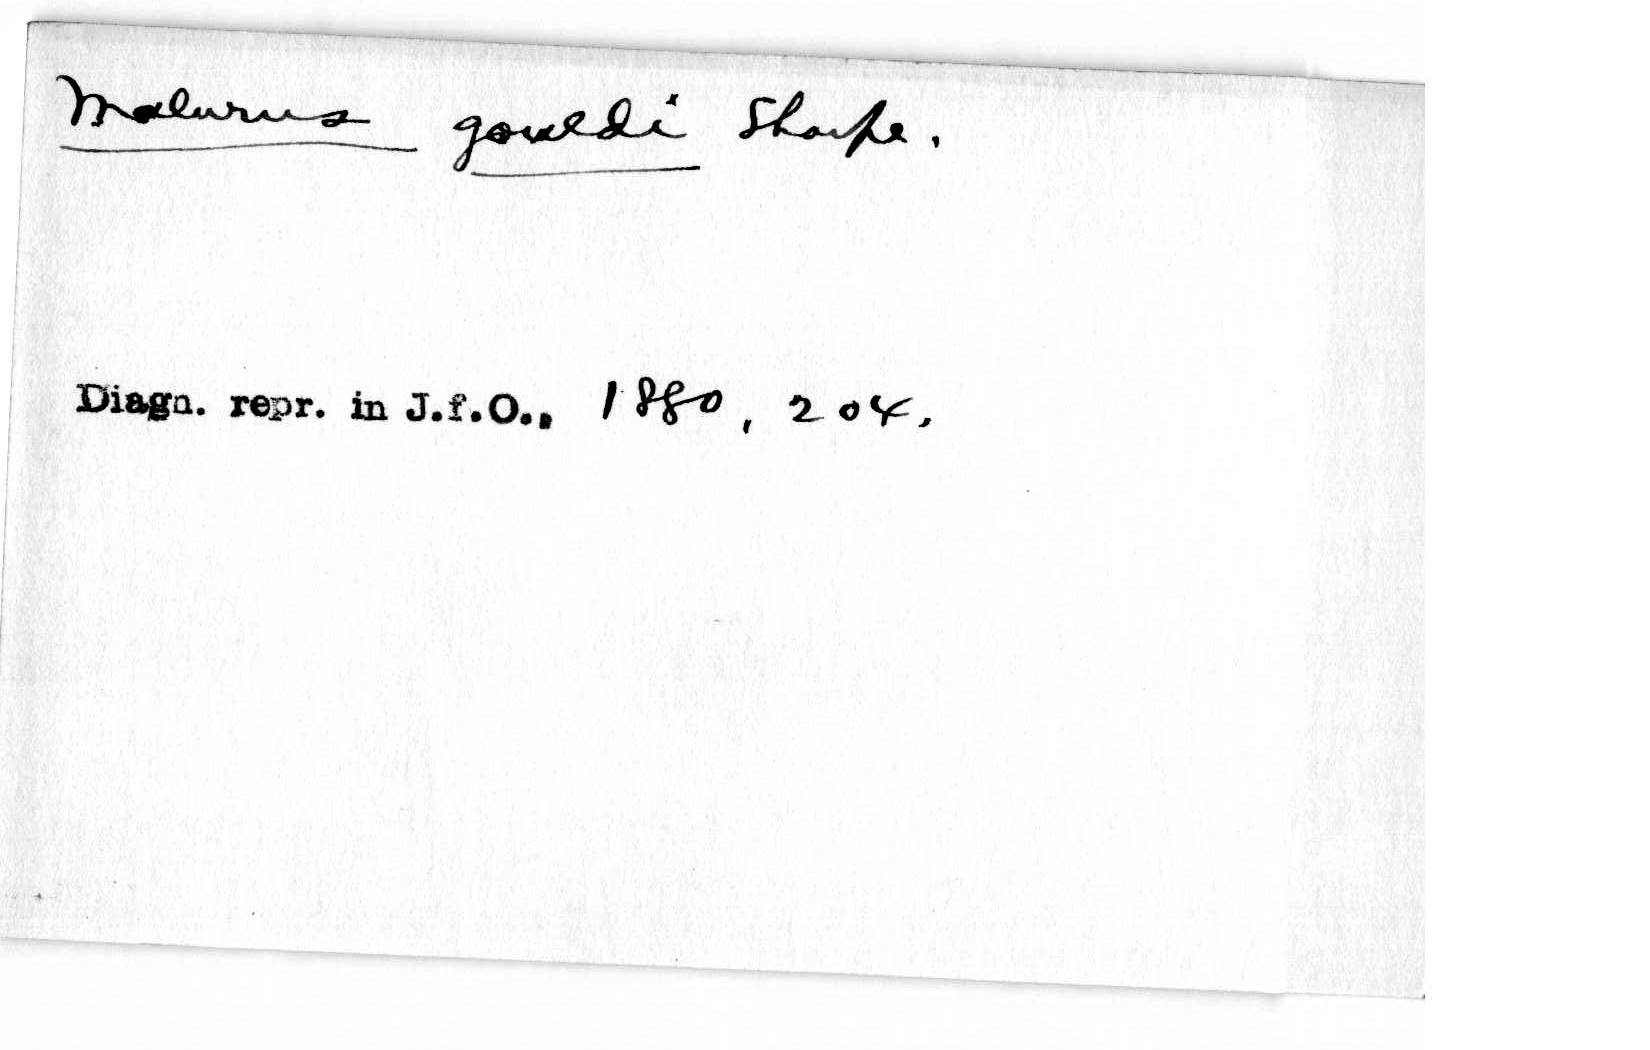 Malurus gouldi Sharpe.
Diagn. repr. in J.f.O., 1880, 204.